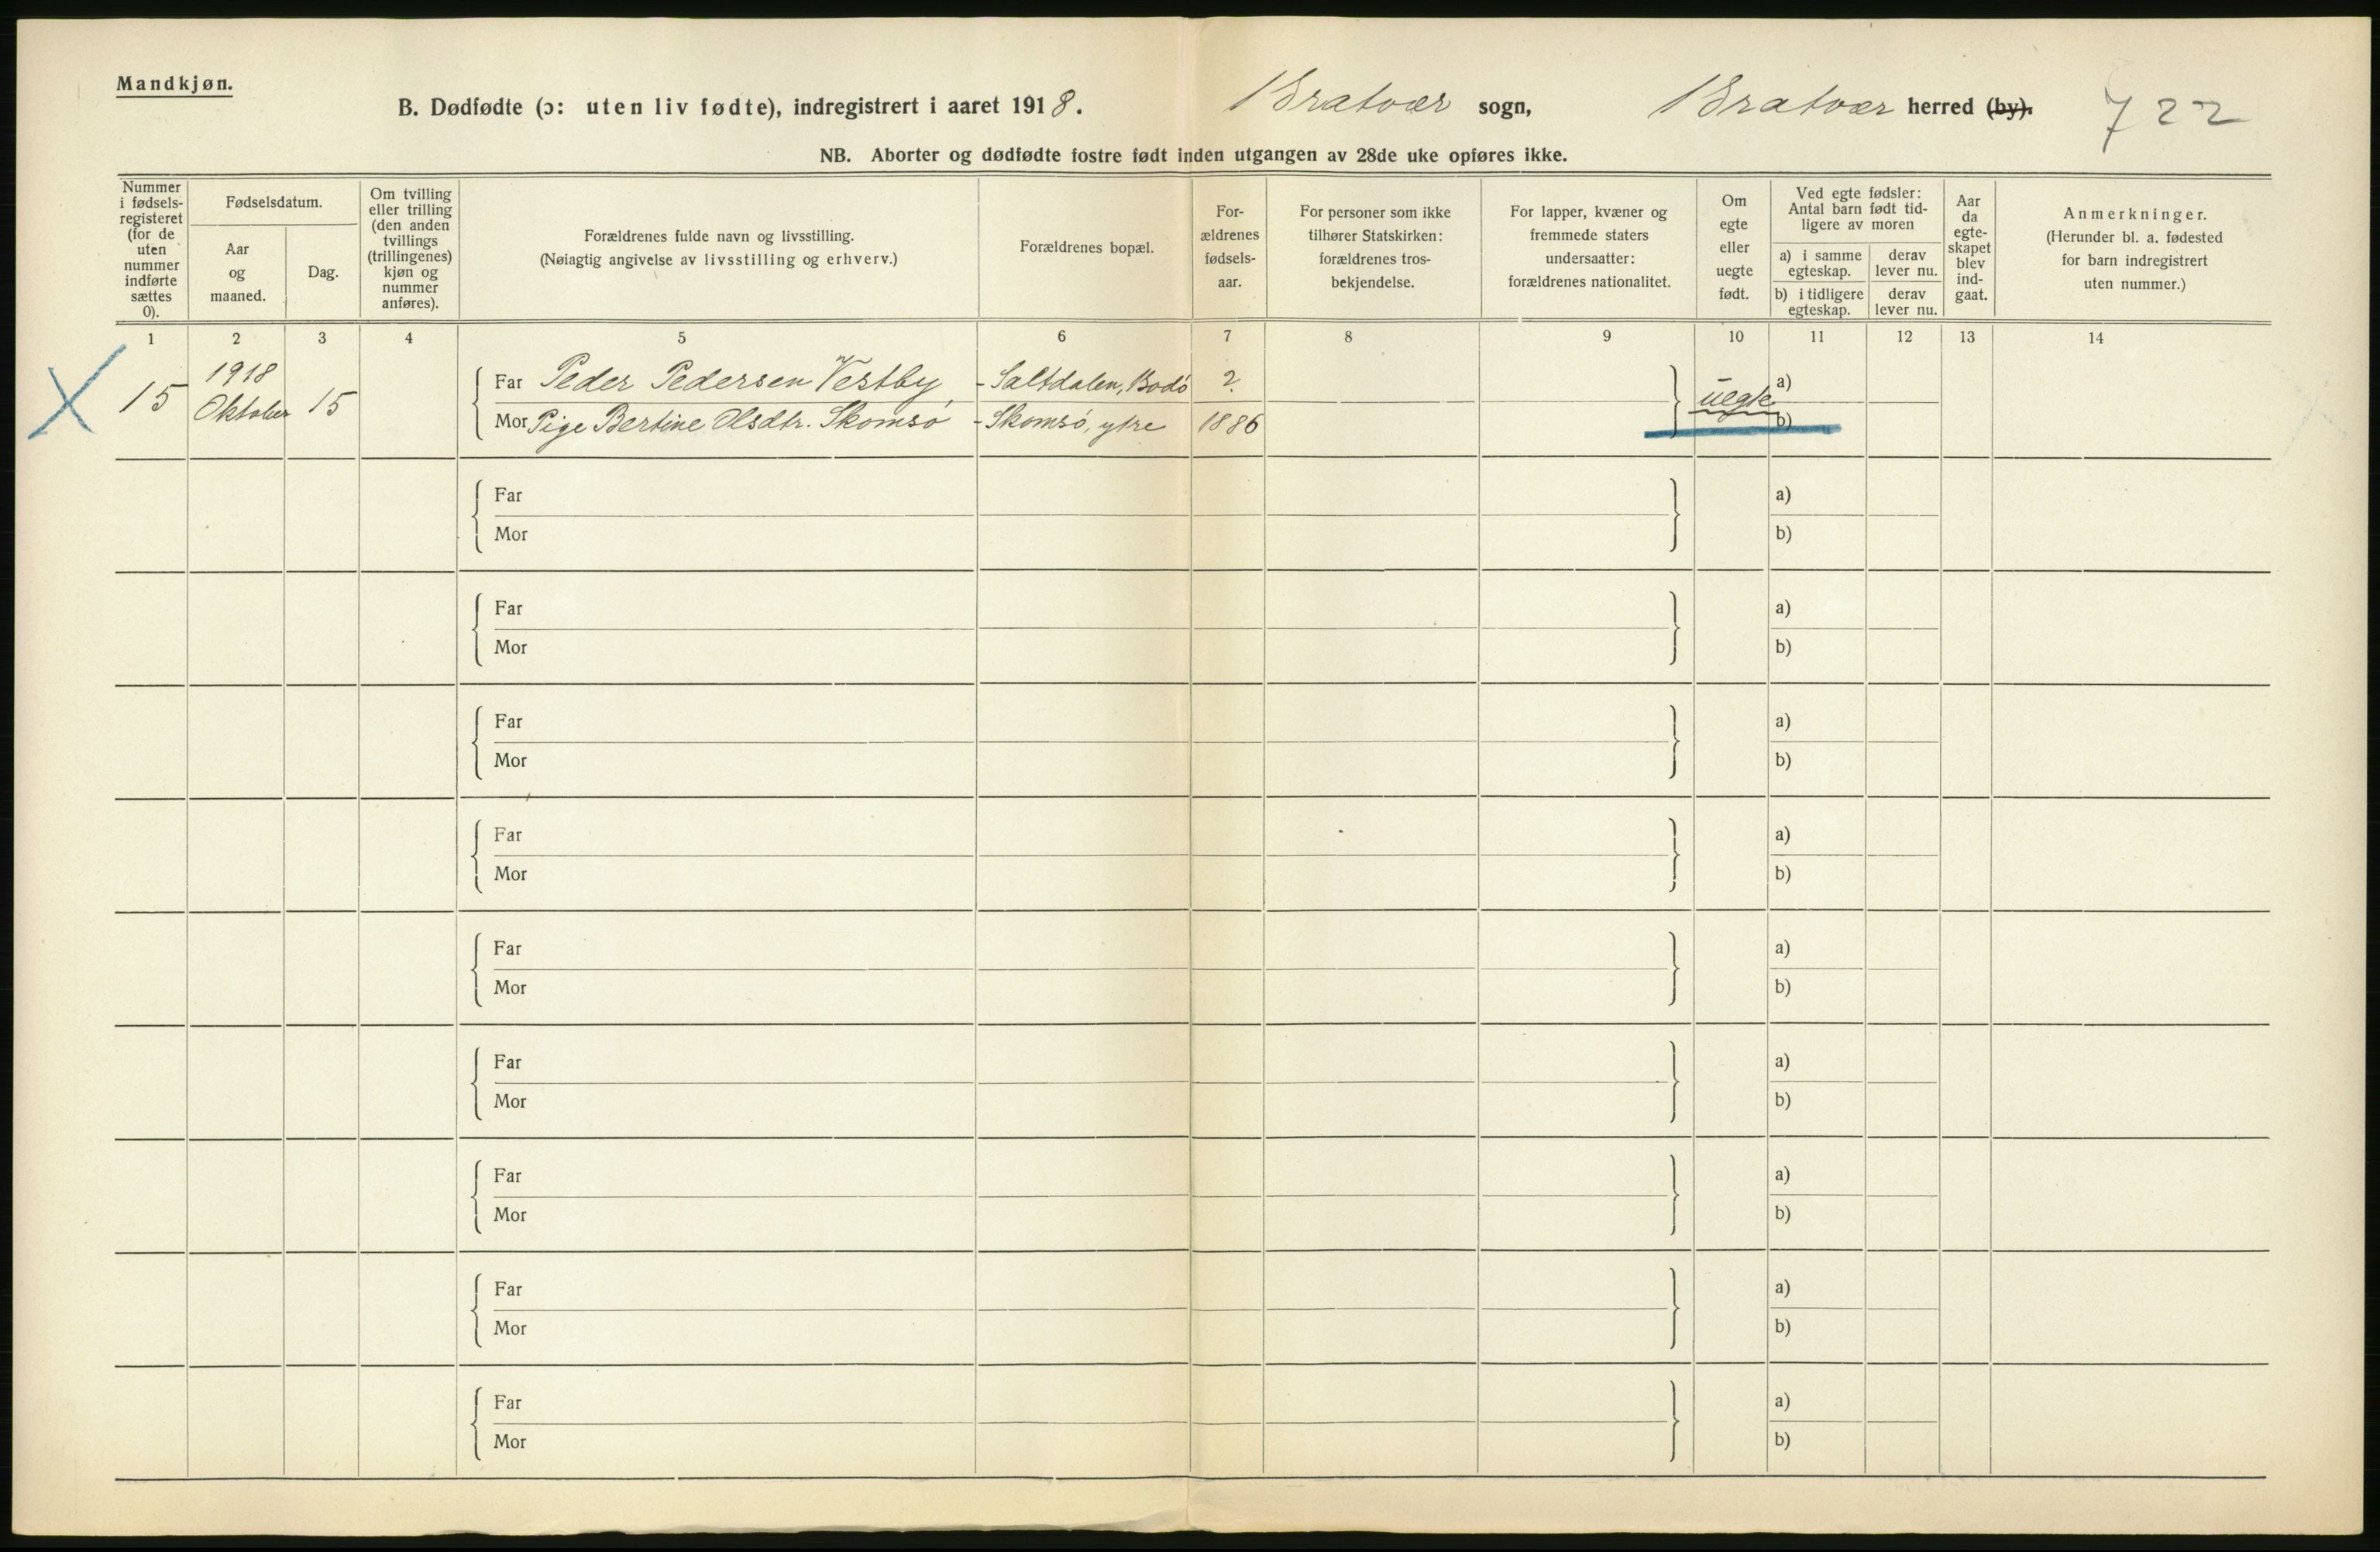 Mandkjøn.
B. Dødfødte (ɔ: uten liv fødte), indregistrert i aaret 1918. Bratvær sogn, Bratvær herred (by). 722
NB. Aborter og dødfødte fostre født inden utgangen av 28de uke opføres ikke.
Nummer
i fødsels-
registeret
(for de
uten
nummer
indførte
sættes
0).
Fødselsdatum.
Aar
og
maaned.
Dag.
Om tvilling
eller trilling
(den anden
tvillings
(trillingenes)
kjøn og
nummer
anføres).
Forældrenes fulde navn og livsstilling.
(Nøiagtig angivelse av livsstilling og erhverv.)
Forældrenes bopæl.
For-
ældrenes
fødsels-
aar.
For personer som ikke
tilhører Statskirken:
forældrenes tros-
bekjendelse.
For lapper, kvæner og
fremmede staters
undersaatter:
forældrenes nationalitet.
Om
egte
eller
uegte
født.
Ved egte fødsler:
Antal barn født tid-
ligere av moren
a) i samme
egteskap.
derav
lever nu.
b) i tidligere
egteskap.
derav
lever nu.
Aar
da
egte-
skapet
blev
ind-
gaat.
Anmerkninger.
(Herunder bl. a. fødested
for barn indregistrert
uten nummer.)
1 2 3 4 5 6 7 8 9 10 11 12 13 14
15 1918 Oktober 15
Far Peder Pedersen Vestby - Saltdalen, Bodö ? uegte a)
Mor Pige Bertine Olsdtr. Skomsö - Skomsö, ytre 1886 b)
Far a)
Mor b)
Far a)
Mor b)
Far a)
Mor b)
Far a)
Mor b)
Far a)
Mor b)
Far a)
Mor b)
Far a)
Mor b)
Far a)
Mor b)
Far a)
Mor b)